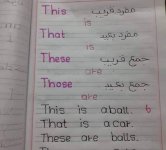 This مفرد قریب
is
That مفرد بعید
is
These جمع قریب
are
Those جمع بعید
are
This is a ball. 6
That is a car.
These are balls.